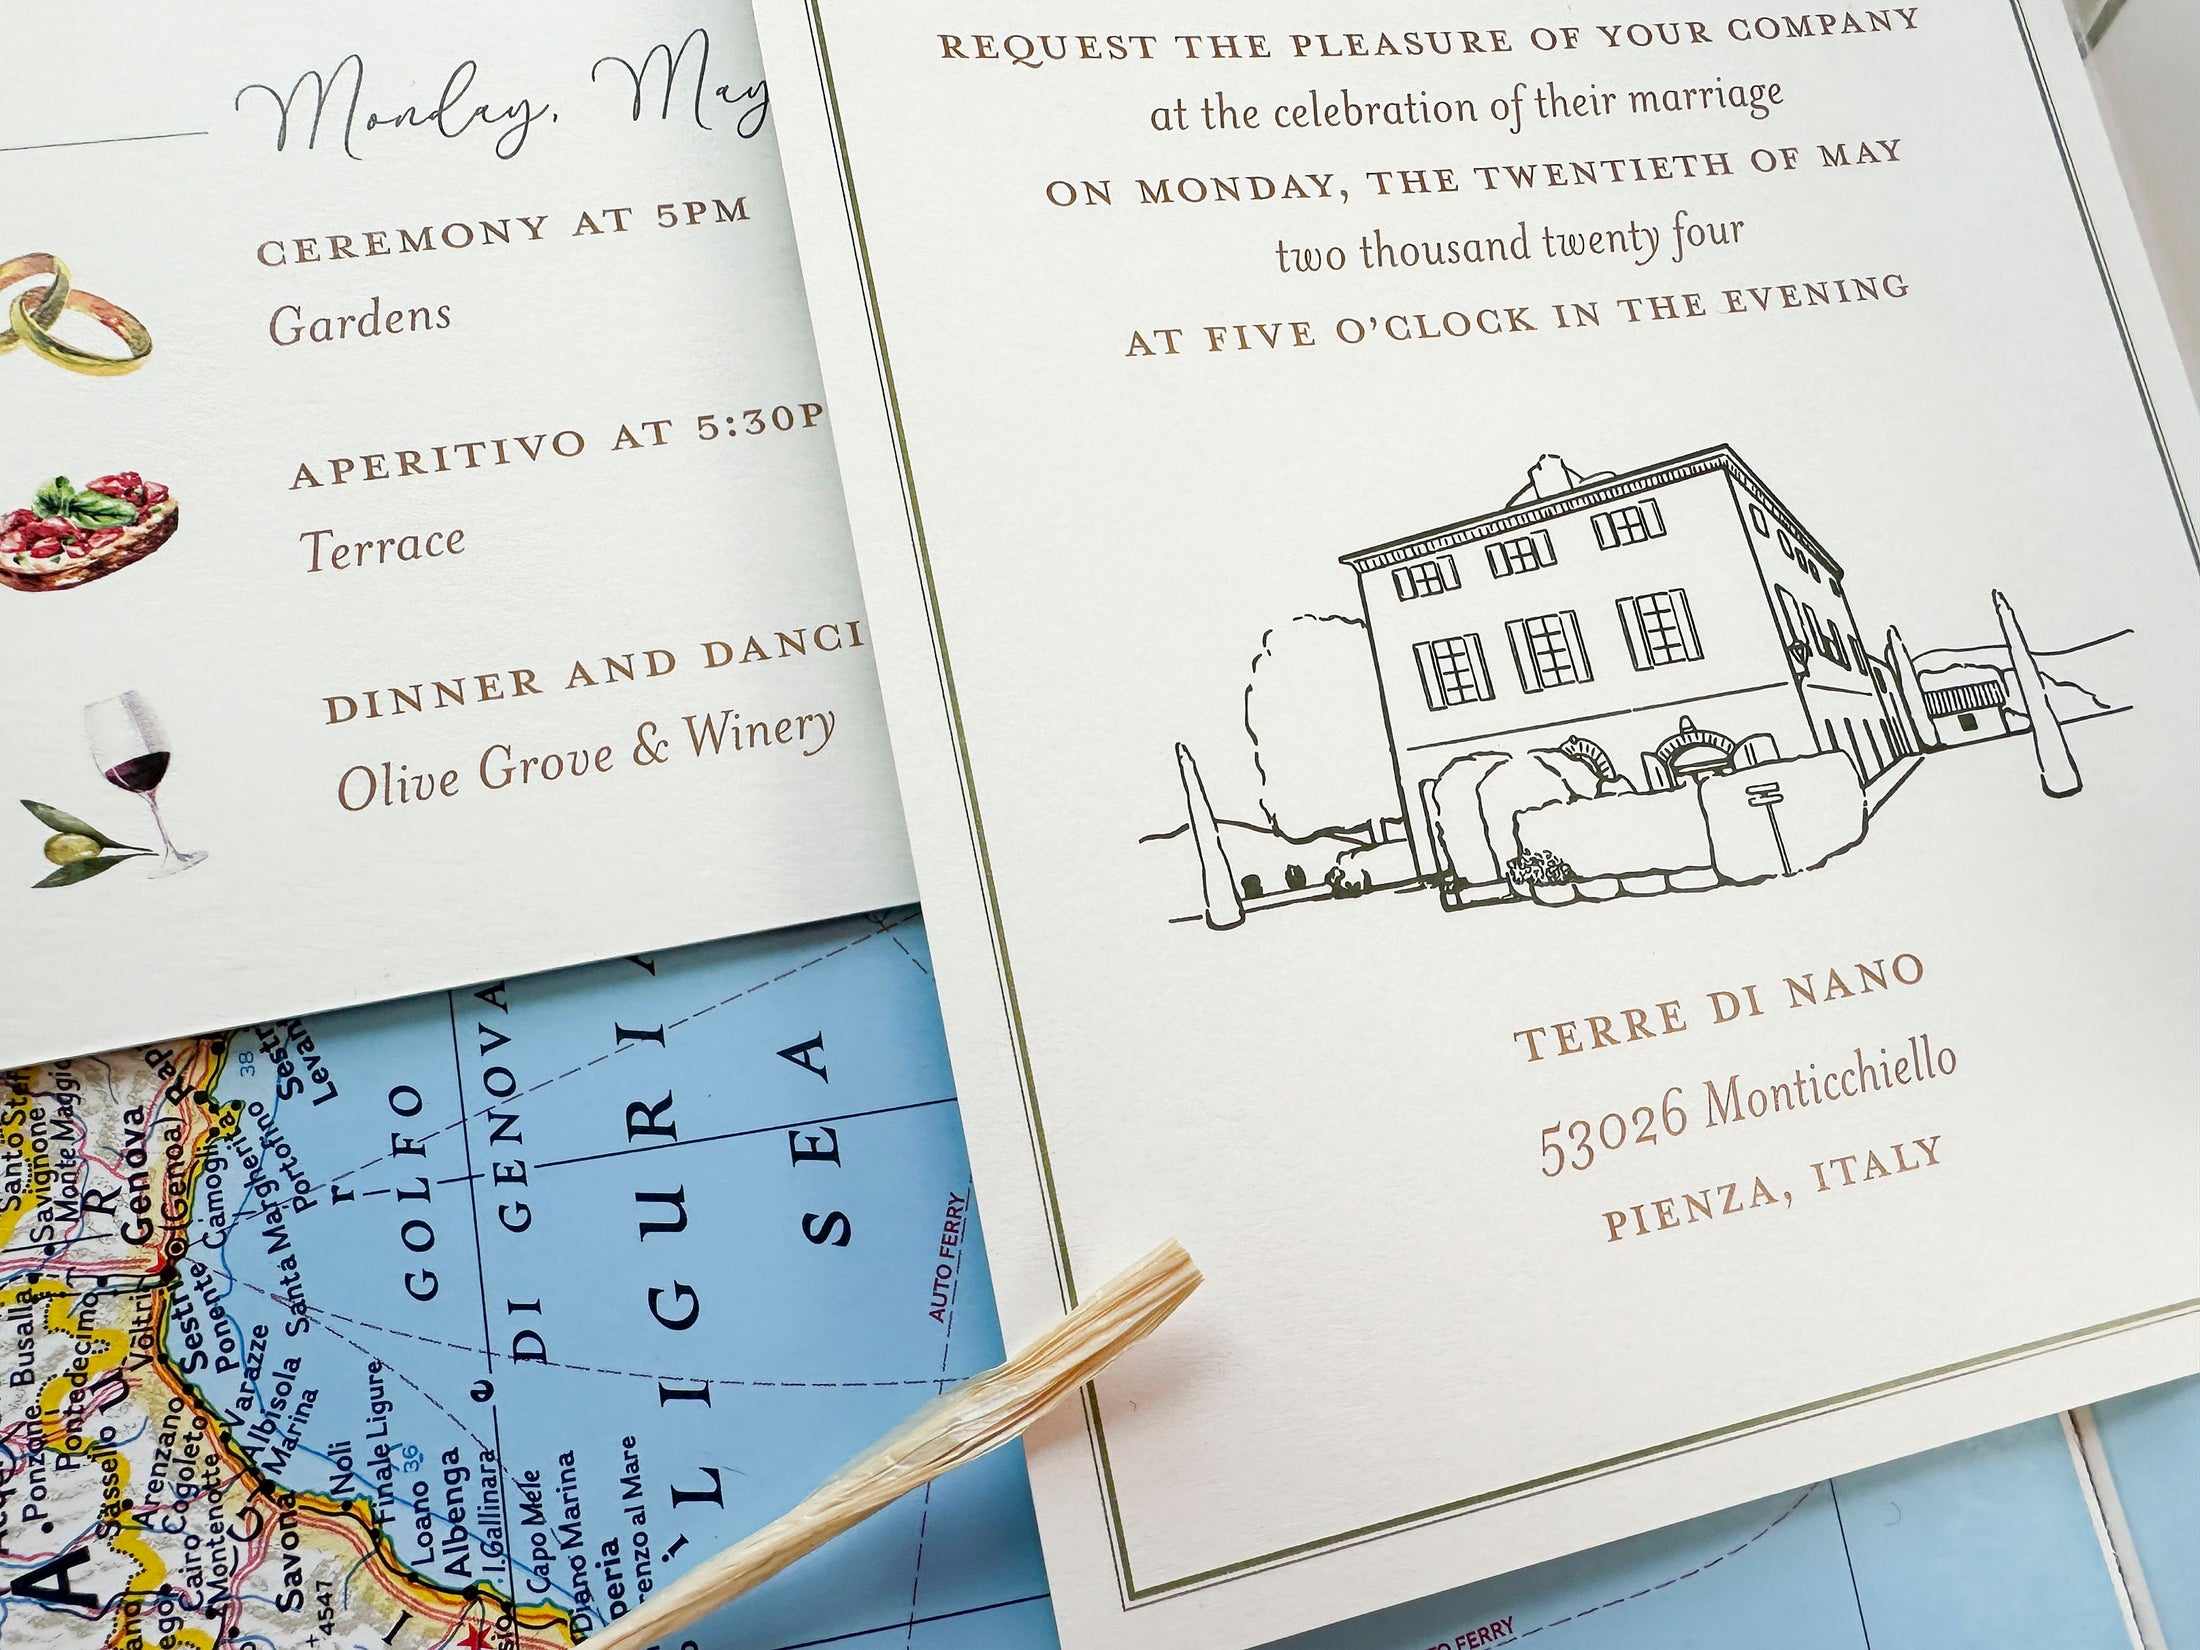 Monday, May
CEREMONY AT 5PM
Gardens
APERITIVO AT 5:30P
Terrace
DINNER AND DANCI
Olive Grove & Winery
REQUEST THE PLEASURE OF YOUR COMPANY
at the celebration of their marriage
ON MONDAY, THE TWENTIETH OF MAY
two thousand twenty four
AT FIVE O'CLOCK IN THE EVENING
TERRE DI NANO
53026 Monticchiello
PIENZA, ITALY
LIGURIA
SEA
GOLFO
DI GENOVA
AUTO FERRY
Levan
Sestr
38
Rap
Portofino
Santa Margherita
Camogli
Genova
(Genoa)
Monte Maggio
Savignone
Santo Stef
Busalla
Ponzone
Pontedecimo
Voltri
Sestri
Ponente
Varazze
Albisola
Marina
Arenzano
Cogoleto
Sassello
Cairo
Montenotte
Savona
Noli
Finale Ligure
Loano
36
Albenga
I. Gallinara
Capo Mele
Diano Marina
peria
renzo al Mare
4547
FERRY